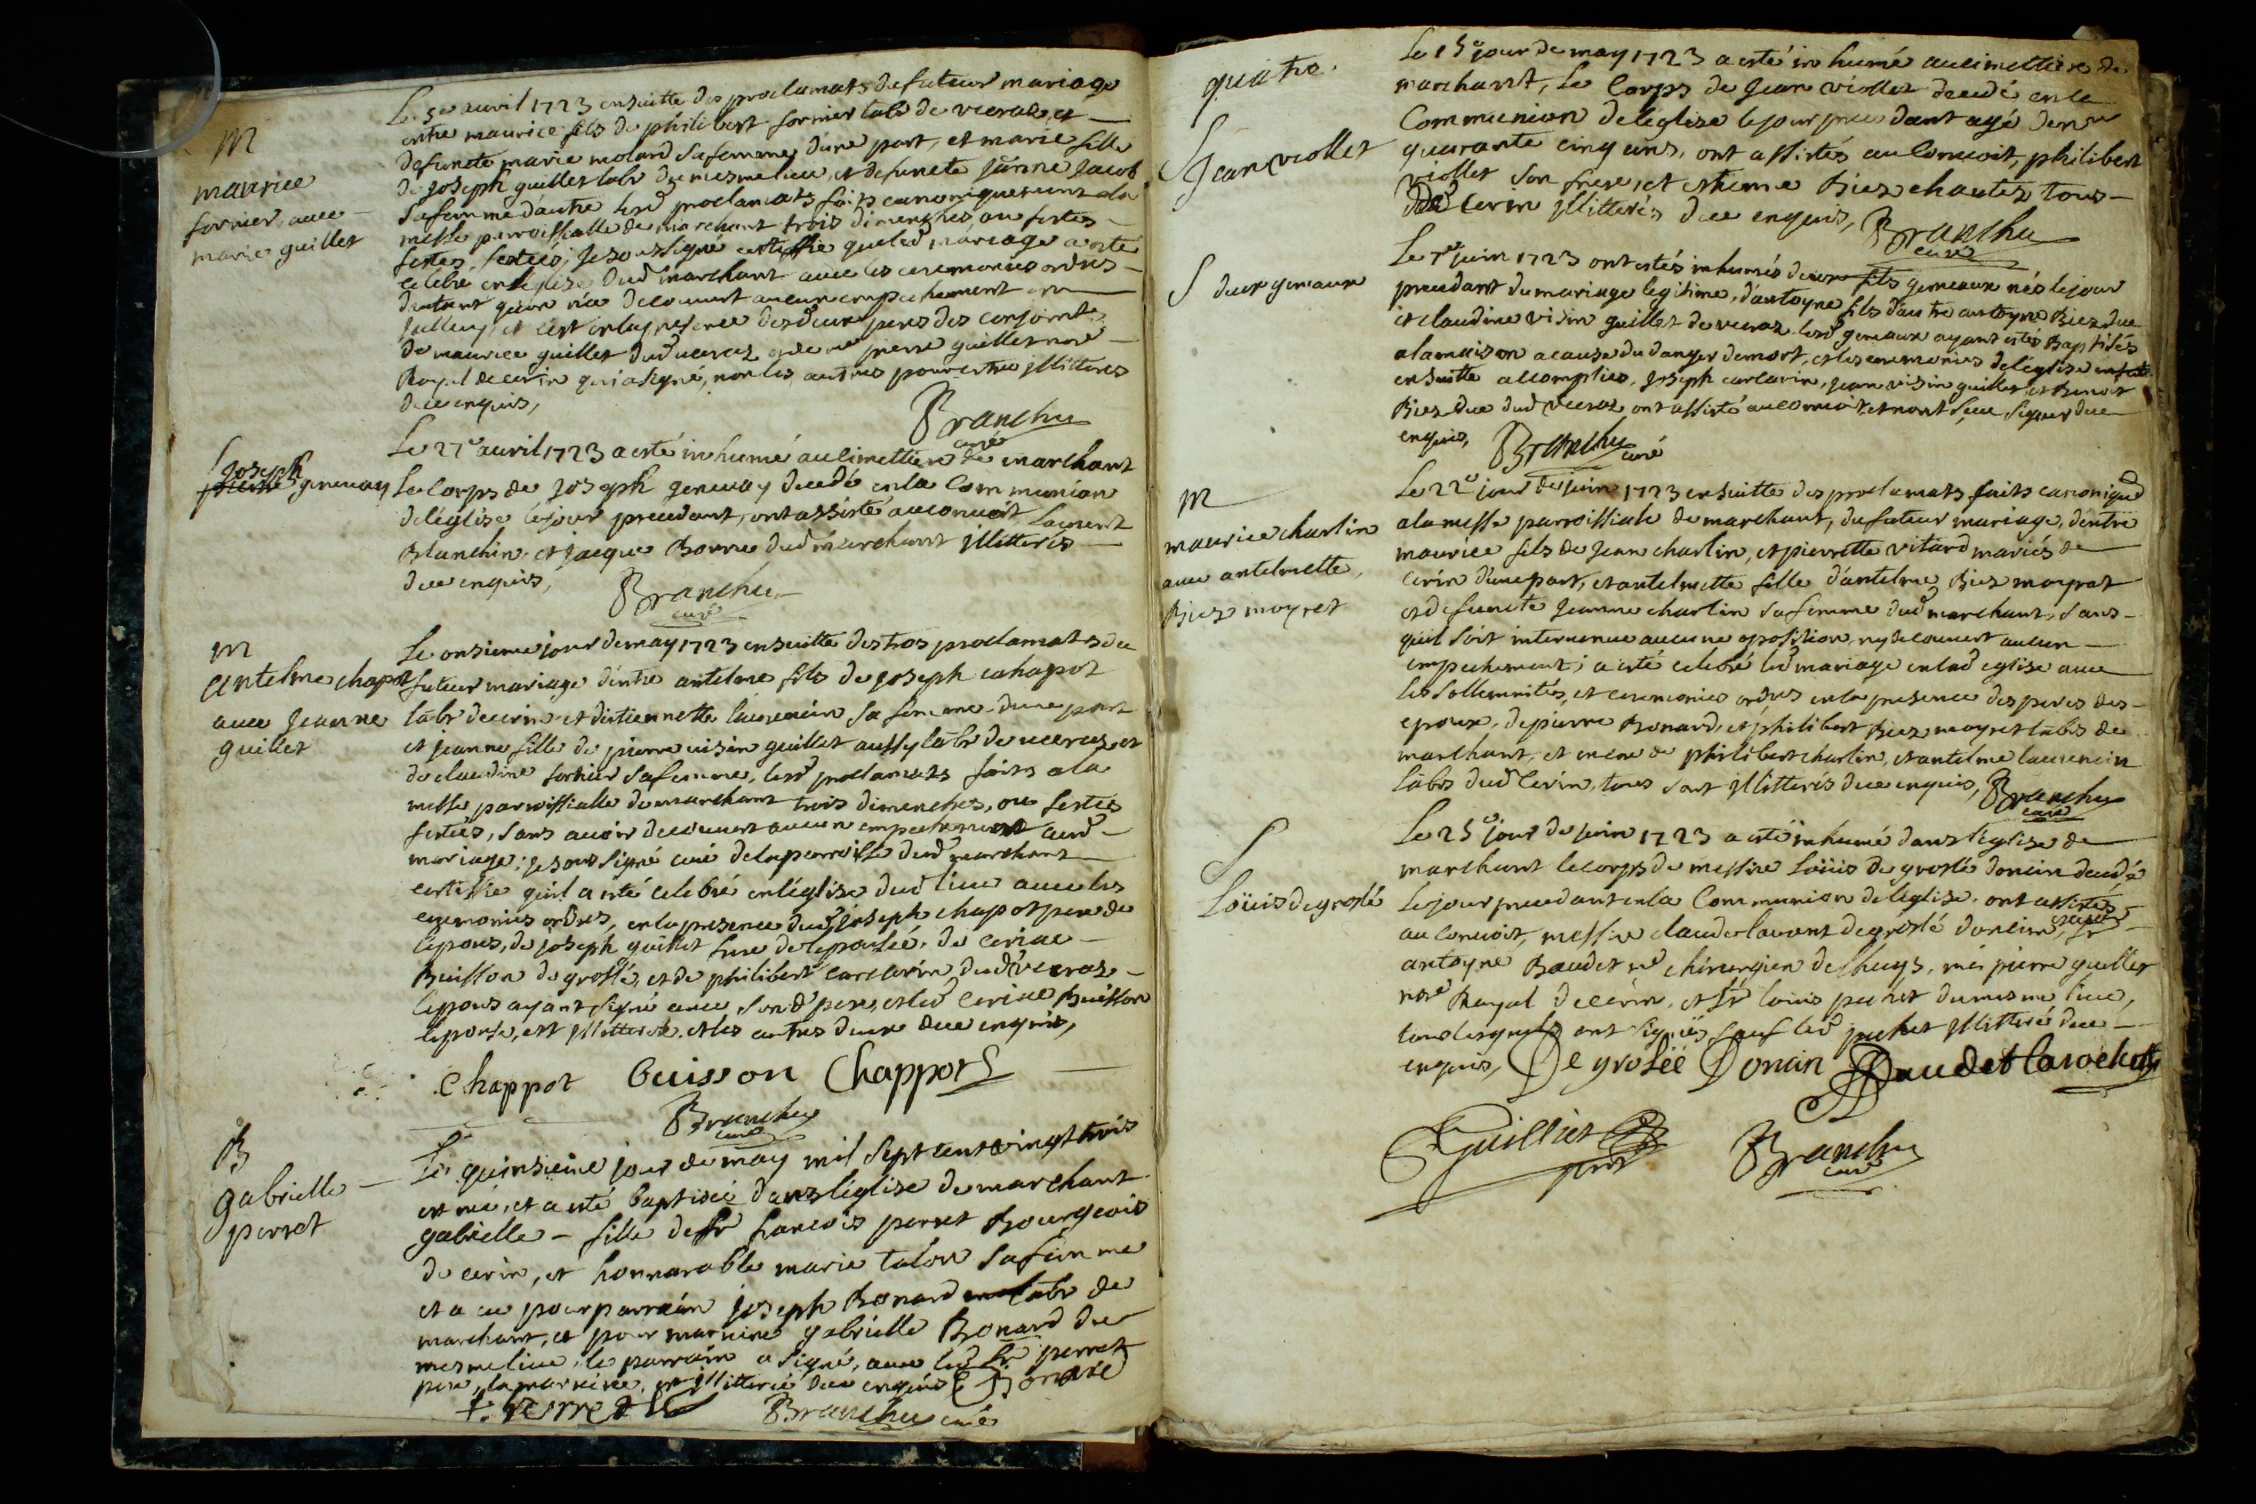 M
maurice
fornier, avec
marie guillet
Le 5e avril 1723 ensuitte des proclamats du futeur mariage
entre maurice fils de philibert fornier labr de veeraz et
defuncte marie molard sa femme d'une part, et marie fille
de Joseph guillet labr du mesme lieu, et defuncte Janne Jacob
sa femme d'autre lesd proclamats faits canoniquement a la
messe parroissialle de marchant trois dimenches ou festes
festés; Je soussigné certiffie que led mariage a esté
celebré en l'eglise dud marchant avec les ceremonies ordres
d'autant qu'on n'a decouvert aucun empechement
et c'est en la presence des deux peres des conjoints
de maurice guillet dud veeraz et de me pierre guillet nore
Royal de cerin qui a signé, non les autres pour estre illitteres
de ce enquis,
Branchu
curé
Joseph
genevay
Le 27e avril 1723 a esté inhumé au cimettiere de marchant
Le Corps de Joseph genevay decedé en la Communion
de l'église le jour precedant, ont assisté au convoit Laurent
Blanchin et jacque Bonne dud marchant illitterés
de ce enquis,
Branchu
curé
M
antelme chapot
avec Jeanne
guillet
Le onsieme jour de may 1723 ensuitte des trois proclamats du
futeur mariage d'entre antelme fils de Joseph chapot
labr de cerin et d'estiennette laurencin sa femme d'une part
et jeanne fille de pierre visin guillet aussy labr de veeraz et
de claudine fornier sa femme, lesd proclamats faits a la
messe parroissialle de marchant trois dimenches, ou festes
festées, sans avoir decouvert aucun empechement aud
mariage; Je soussigné curé de la parroisse dud marchant
certiffie qu'il a esté celebré en l'église dud lieu avec les
ceremonies ordres, en la presence dud joseph chapot pere de
l'epoux, de joseph guillet frere de l'epousée, de ceriac
Buisson de groslé, et de philibert carclarin dud veeraz
l'epoux ayant signé avec son d pere, et led ceriac Buisson
l'epouse, est illitterée, et les autres de ce enquis,
Chappot Buisson Chappot
Branchu
curé
B
gabrielle
perret
Le quinsieme jour de may mil sept cent vingt trois
est née, et a esté baptisée dans l'église de marchant
gabrielle – fille de sr francois perret Bourgeois
de cerin, et honnorable marie talon sa femme
et a eu pour parrain joseph Bonard labr de
marchant, et pour marrine gabrielle Bonard du
mesme lieu, le parrain a signé, avec led sr perret
pere, la marrine, est illitterée de ce enquis J Bonard
f. perret Branchu curé
quatre.
S
Jean viollet
Le 15e jour de may 1723 a esté inhumé au cimettiere de
marchant, Le Corps de Jean viollet decedé en la
Communion de l'église le jour precedant agé d'env
quarante cinq ans, ont assistés au Convoit, philibert
viollet son frere, et estienne Biez chantez tous
de Cerin illitterés de ce enquis, Branchu
curé
S deux gemeaux
Le 7e juin 1723 ont estés inhumés deux fils gemeaux nés le jour
precedant du mariage legitime, d'antoyne fils d'autre antoyne Biez due
et claudine visin guillet de veeraz lesd gemeaux ayant estés Baptisés
a la maison a cause du danger de mort, et les ceremonies de l'église
ensuitte accomplies, Joseph carclarin, jean visin guillet, et Benoit
Biez due dud veeraz ont assisté au convoit, et n'ont sçeu signer de ce
enquis, Branchu curé
M
maurice charlin
avec antelmette
Biez moyret
Le 22e jour de juin 1723 ensuitte des proclamats faits canoniqu
a la messe parroissiale de marchant, du futeur mariage, d'entre
maurice fils de Jean charlin, et pierrette vitard mariés de
cerin d'une part, et antelmette fille d'antelme Biez moyrat
et defuncte Jeanne charlin sa femme dud marchant, sans
qu'il soit intervenu aucune oposition ny decouvert aucun
empechement; a esté celebré led mariage en lad eglise avec
les sollemnités, et ceremonies ordres en la presence des peres des
epoux, de pierre Bonard, et philibert Biez moyret labrs de
marchant, et encore de philibert charlin, et antelme laurencin
labrs dud Cerin, tous sont illitterés de ce enquis, Branchu
curé
S
Loüis de groslé
Le 25e jour de juin 1723 a esté inhumé dans l'église de
marchant le corps de messire Loüis de groslé doncin decedé
le jour precedant en la Communion de l'église, ont assistés
au convoit, messire claude laurant de groslé doncin, sr
antoyne Baudet me chirurgien de lhuys, me pierre guillet
nore Royal de cerin, et sr louis pechet du mesme lieu,
tous lesquels ont signés, sauf led pechet illitteré de ce
enquis, De groslée Doncin Baudet larochette
Guilliet
Branchu
curé